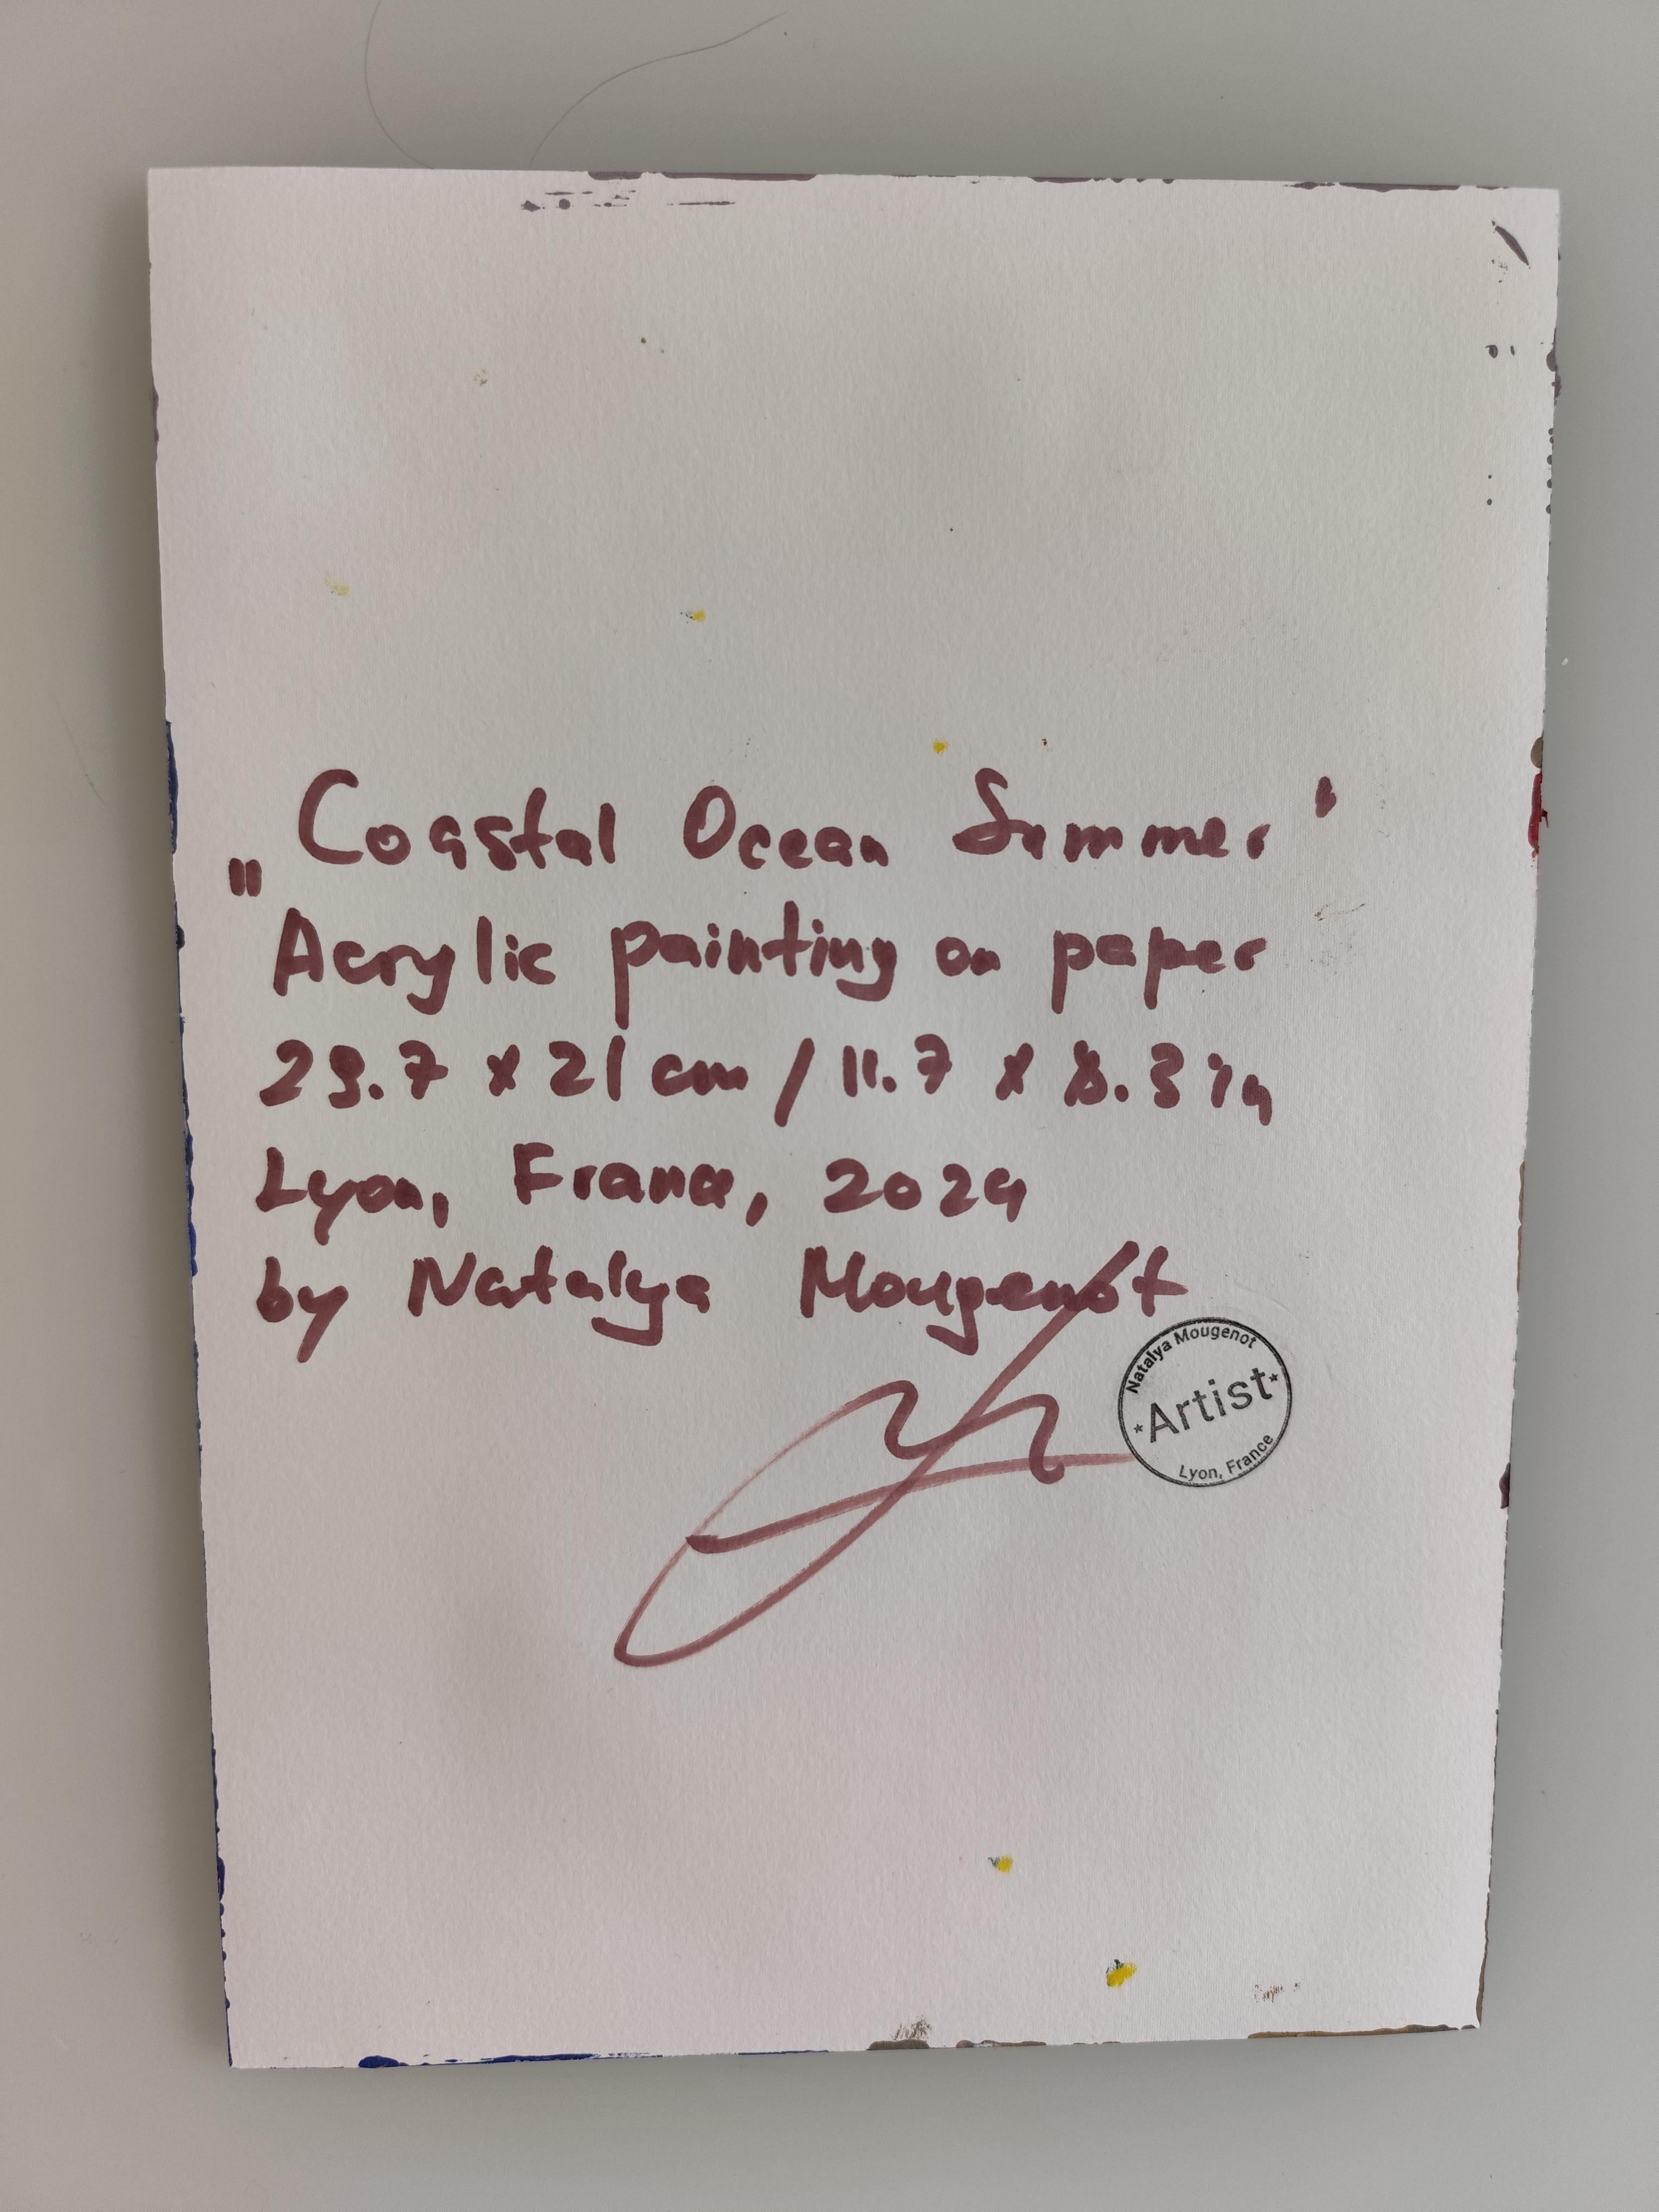 „Coastal Ocean Summer"
Acrylic painting on paper
29.7 x 21 cm / 11.7 x 8.3 in
Lyon, France, 2024
by Natalya Mougenot
Natalya Mougenot
*Artist*
Lyon, France